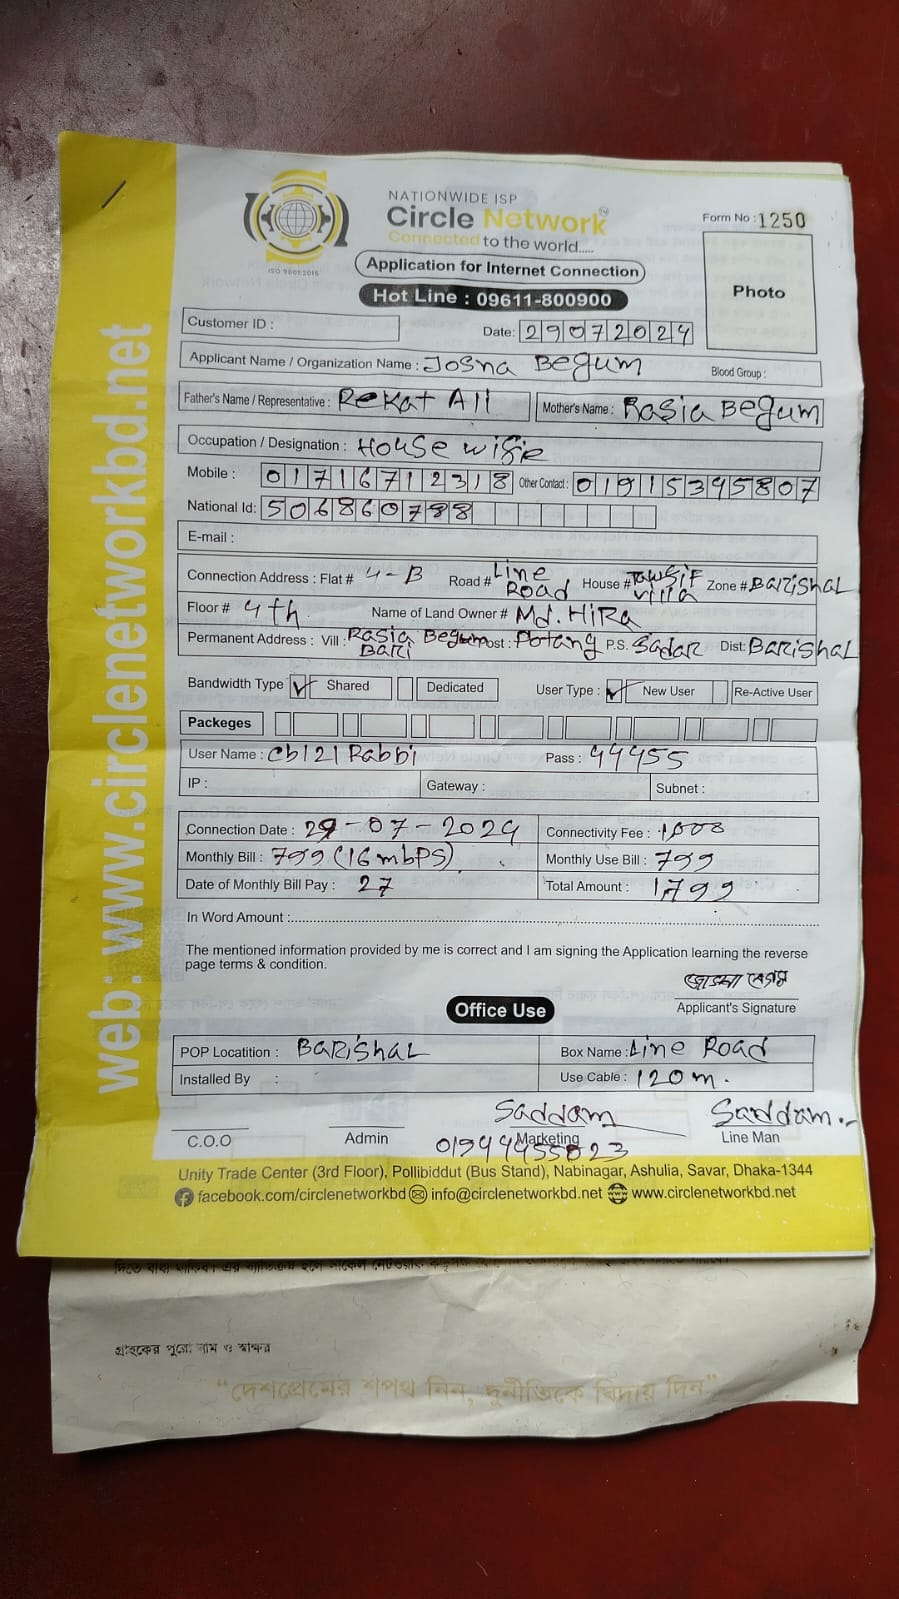 NATIONWIDE ISP
Circle Network
TM
Connected to the world.....
ISO 9001:2015
Form No : 1250
Application for Internet Connection
Hot Line : 09611-800900
Photo
web: www.circlenetworkbd.net
Customer ID :
Date: 29072024
Applicant Name / Organization Name : Josna Begum Blood Group :
Father's Name / Representative : Rekat Ali Mother's Name : Rasia Begum
Occupation / Designation : House wife
Mobile : 01716712318 Other Contact : 01915345807
National Id: 506860788
E-mail :
Connection Address : Flat # 4-B Road # Line Road House # Tawsif villa Zone # BARISHAL
Floor # 4th Name of Land Owner # Md. HiRa
Permanent Address : Vill : Rasia Begum Bari Post : Potang P.S. Sadar Dist: BARISHAL
Bandwidth Type ✓ Shared Dedicated User Type : ✓ New User Re-Active User
Packeges
User Name : cb121 Rabbi Pass : 44455
IP : Gateway : Subnet :
Connection Date : 29-07-2024 Connectivity Fee : 1000
Monthly Bill : 799 (16 mbps) Monthly Use Bill : 799
Date of Monthly Bill Pay : 27 Total Amount : 1799
In Word Amount :
The mentioned information provided by me is correct and I am signing the Application learning the reverse
page terms & condition.
জোসনা বেগম
Applicant's Signature
Office Use
POP Locatition : BARISHAL Box Name : Line Road
Installed By : Use Cable : 120 m.
Saddam Saddam
C.O.O Admin Marketing Line Man
Unity Trade Center (3rd Floor), Pollibiddut (Bus Stand), Nabinagar, Ashulia, Savar, Dhaka-1344
facebook.com/circlenetworkbd info@circlenetworkbd.net www.circlenetworkbd.net
গ্রাহকের পুরো নাম ও স্বাক্ষর
“দেশপ্রেমের শপথ নিন, দুর্নীতিকে বিদায় দিন”